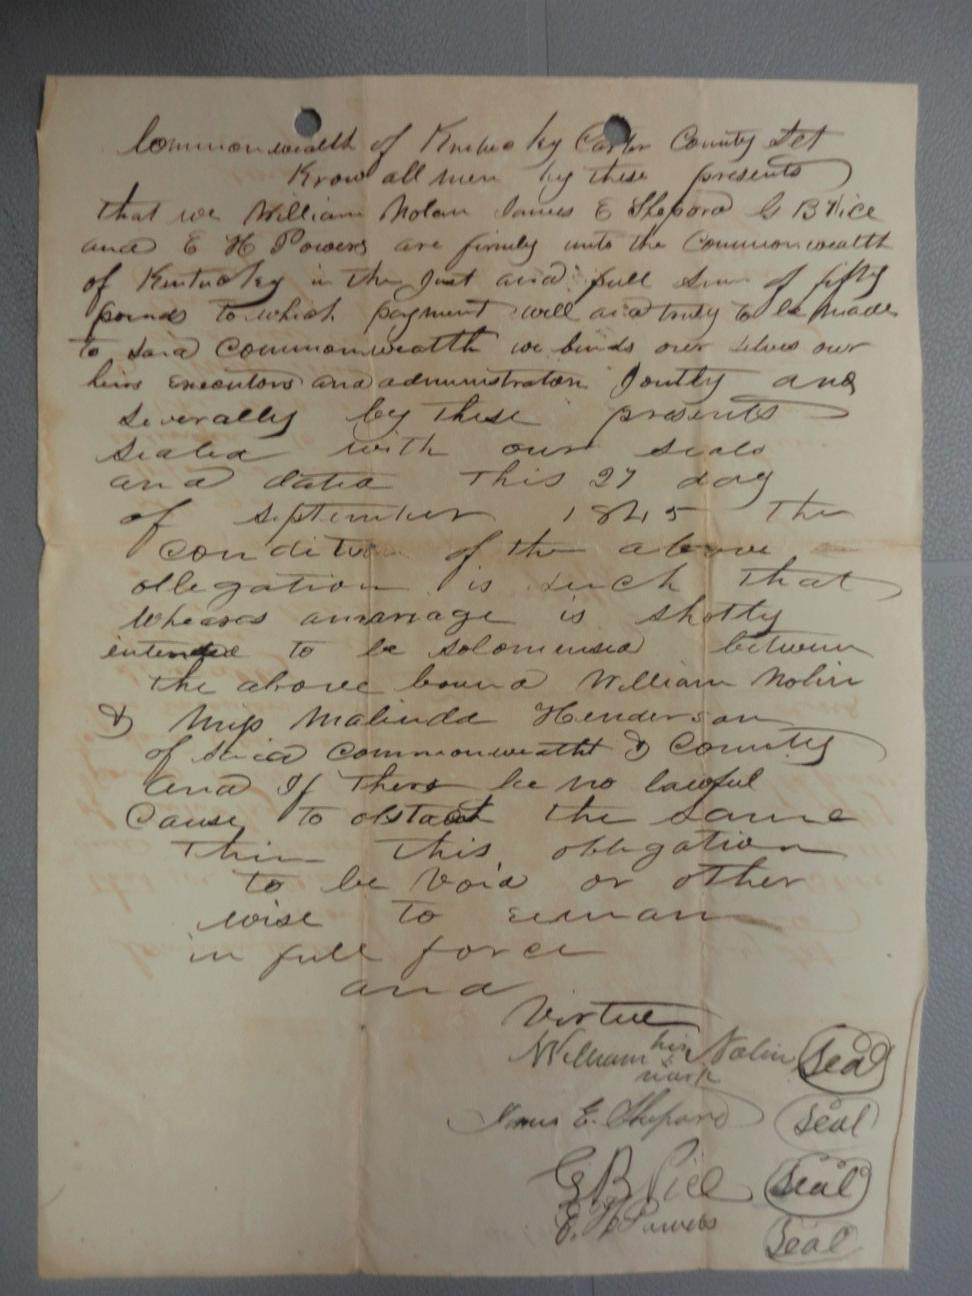 Commonwealth of Kentucky Carter County Sct
Know all men by these presents
that we William Nolan James E Shepard G B Rice
and E H Powers are firmly unto the Commonwealth
of Kentucky in the Just and full sum of fifty
pounds to which payment well and truly to be made
to said Commonwealth we binds our selves our
heirs executors and administrators Jointly and
severally by these presents
sealed with our seals
and dated this 27 day
of September 1845 The
condition of the above
obligation is such that
whereas a marriage is shotly
intended to be solomnised between
the above bound William Nolin
& Miss Malinda Henderson
of said commonwealth & County
and If there be no lawful
Cause to obstruct the same
then this obligation
to be void or other
wise to remain
in full force
and
Virtue
William his mark Nolin Seal
James E. Shepard Seal
G B Rice Seal
E. H Powers Seal